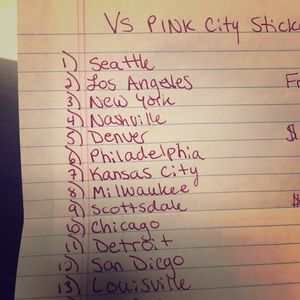 VS PINK City Stick
1) Seattle
2) Los Angeles
3) New York
4) Nashville
5) Denver
6) Philadelphia
7) Kansas City
8) Milwaukee
9) Scottsdale
10) Chicago
11) Detroit
12) San Diego
13) Louisville